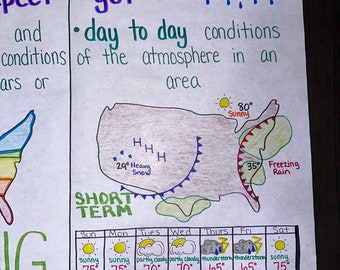 and
conditions
ars or
• day to day conditions
of the atmosphere in an
area
80°
Sunny
H H H
29° Heavy
Snow
35° Freezing
Rain
SHORT
TERM
Sun Mon Tues Wed Thurs Fri Sat
sunny sunny partly cloudy partly cloudy thunderstorm sunny
75° 75° 70° 70° 65° 65° 75°